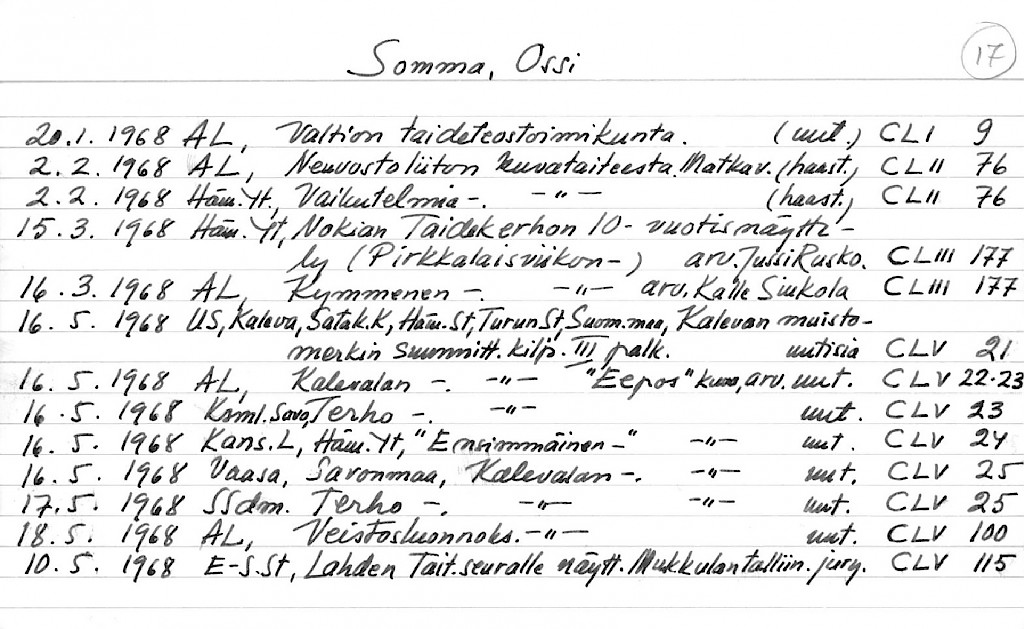 Somma, Ossi 17
20.1.1968 AL, Valtion taideteostoimikunta. (uut.) CLI 9
2.2.1968 AL, Neuvostoliiton kuvataiteesta. Matkav. (haast.) CLII 76
2.2.1968 Häm.Yt, Vaikutelmia -. -"- (haast.) CLII 76
15.3.1968 Häm.Yt, Nokian Taidekerhon 10-vuotisnäytte-
ly (Pirkkalaisviikon-) arv. Jussi Rusko. CLIII 177
16.3.1968 AL, Kymmenen -. -"- arv. Kalle Siukola CLIII 177
16.5.1968 US, Kaleva, Satak.K, Häm.St, Turun St, Suom.maa, Kalevan muisto-
merkin suunnitt. kilp. III palk. uutisia CLV 21
16.5.1968 AL, Kalevalan -. -"- "Eepos" kuva, arv. uut. CLV 22-23
16.5.1968 Ksml. Savo, Terho -. -"- uut. CLV 23
16.5.1968 Kans.L, Häm.Yt, "Ensimmäinen-" -"- uut. CLV 24
16.5.1968 Vaasa, Savonmaa, Kalevalan -. -"- uut. CLV 25
17.5.1968 SSdm. Terho -. -"- -"- uut. CLV 25
18.5.1968 AL, Veistosluonnoks. -"- uut. CLV 100
10.5.1968 E-S.St, Lahden Tait.seuralle näytt. Mukkulan talliin. jury. CLV 115